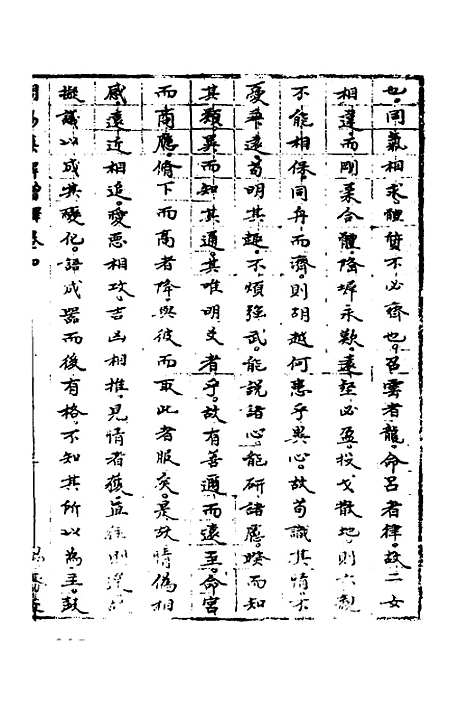 也。同氣相求。體質不必齊也。召雲者龍。命呂者律。故二女
相違。而剛柔合體。隆墀永歎。遠壑必盈。投戈散地。則六親
不能相保。同舟而濟。則胡越何患乎異心。故苟識其情。不
憂乖遠。苟明其趣。不煩強武。能說諸心。能研諸慮。睽而知
其類。異而知其通。其唯明爻者乎。故有善邇而遠至。命宮
而商應。脩下而高者降。與彼而取此者服矣。是故情偽相
感。遠近相追。愛惡相攻。吉凶相推。見情者獲。直往則違。故
擬議以成其變化。語成器而後有格。不知其所以為主。鼓